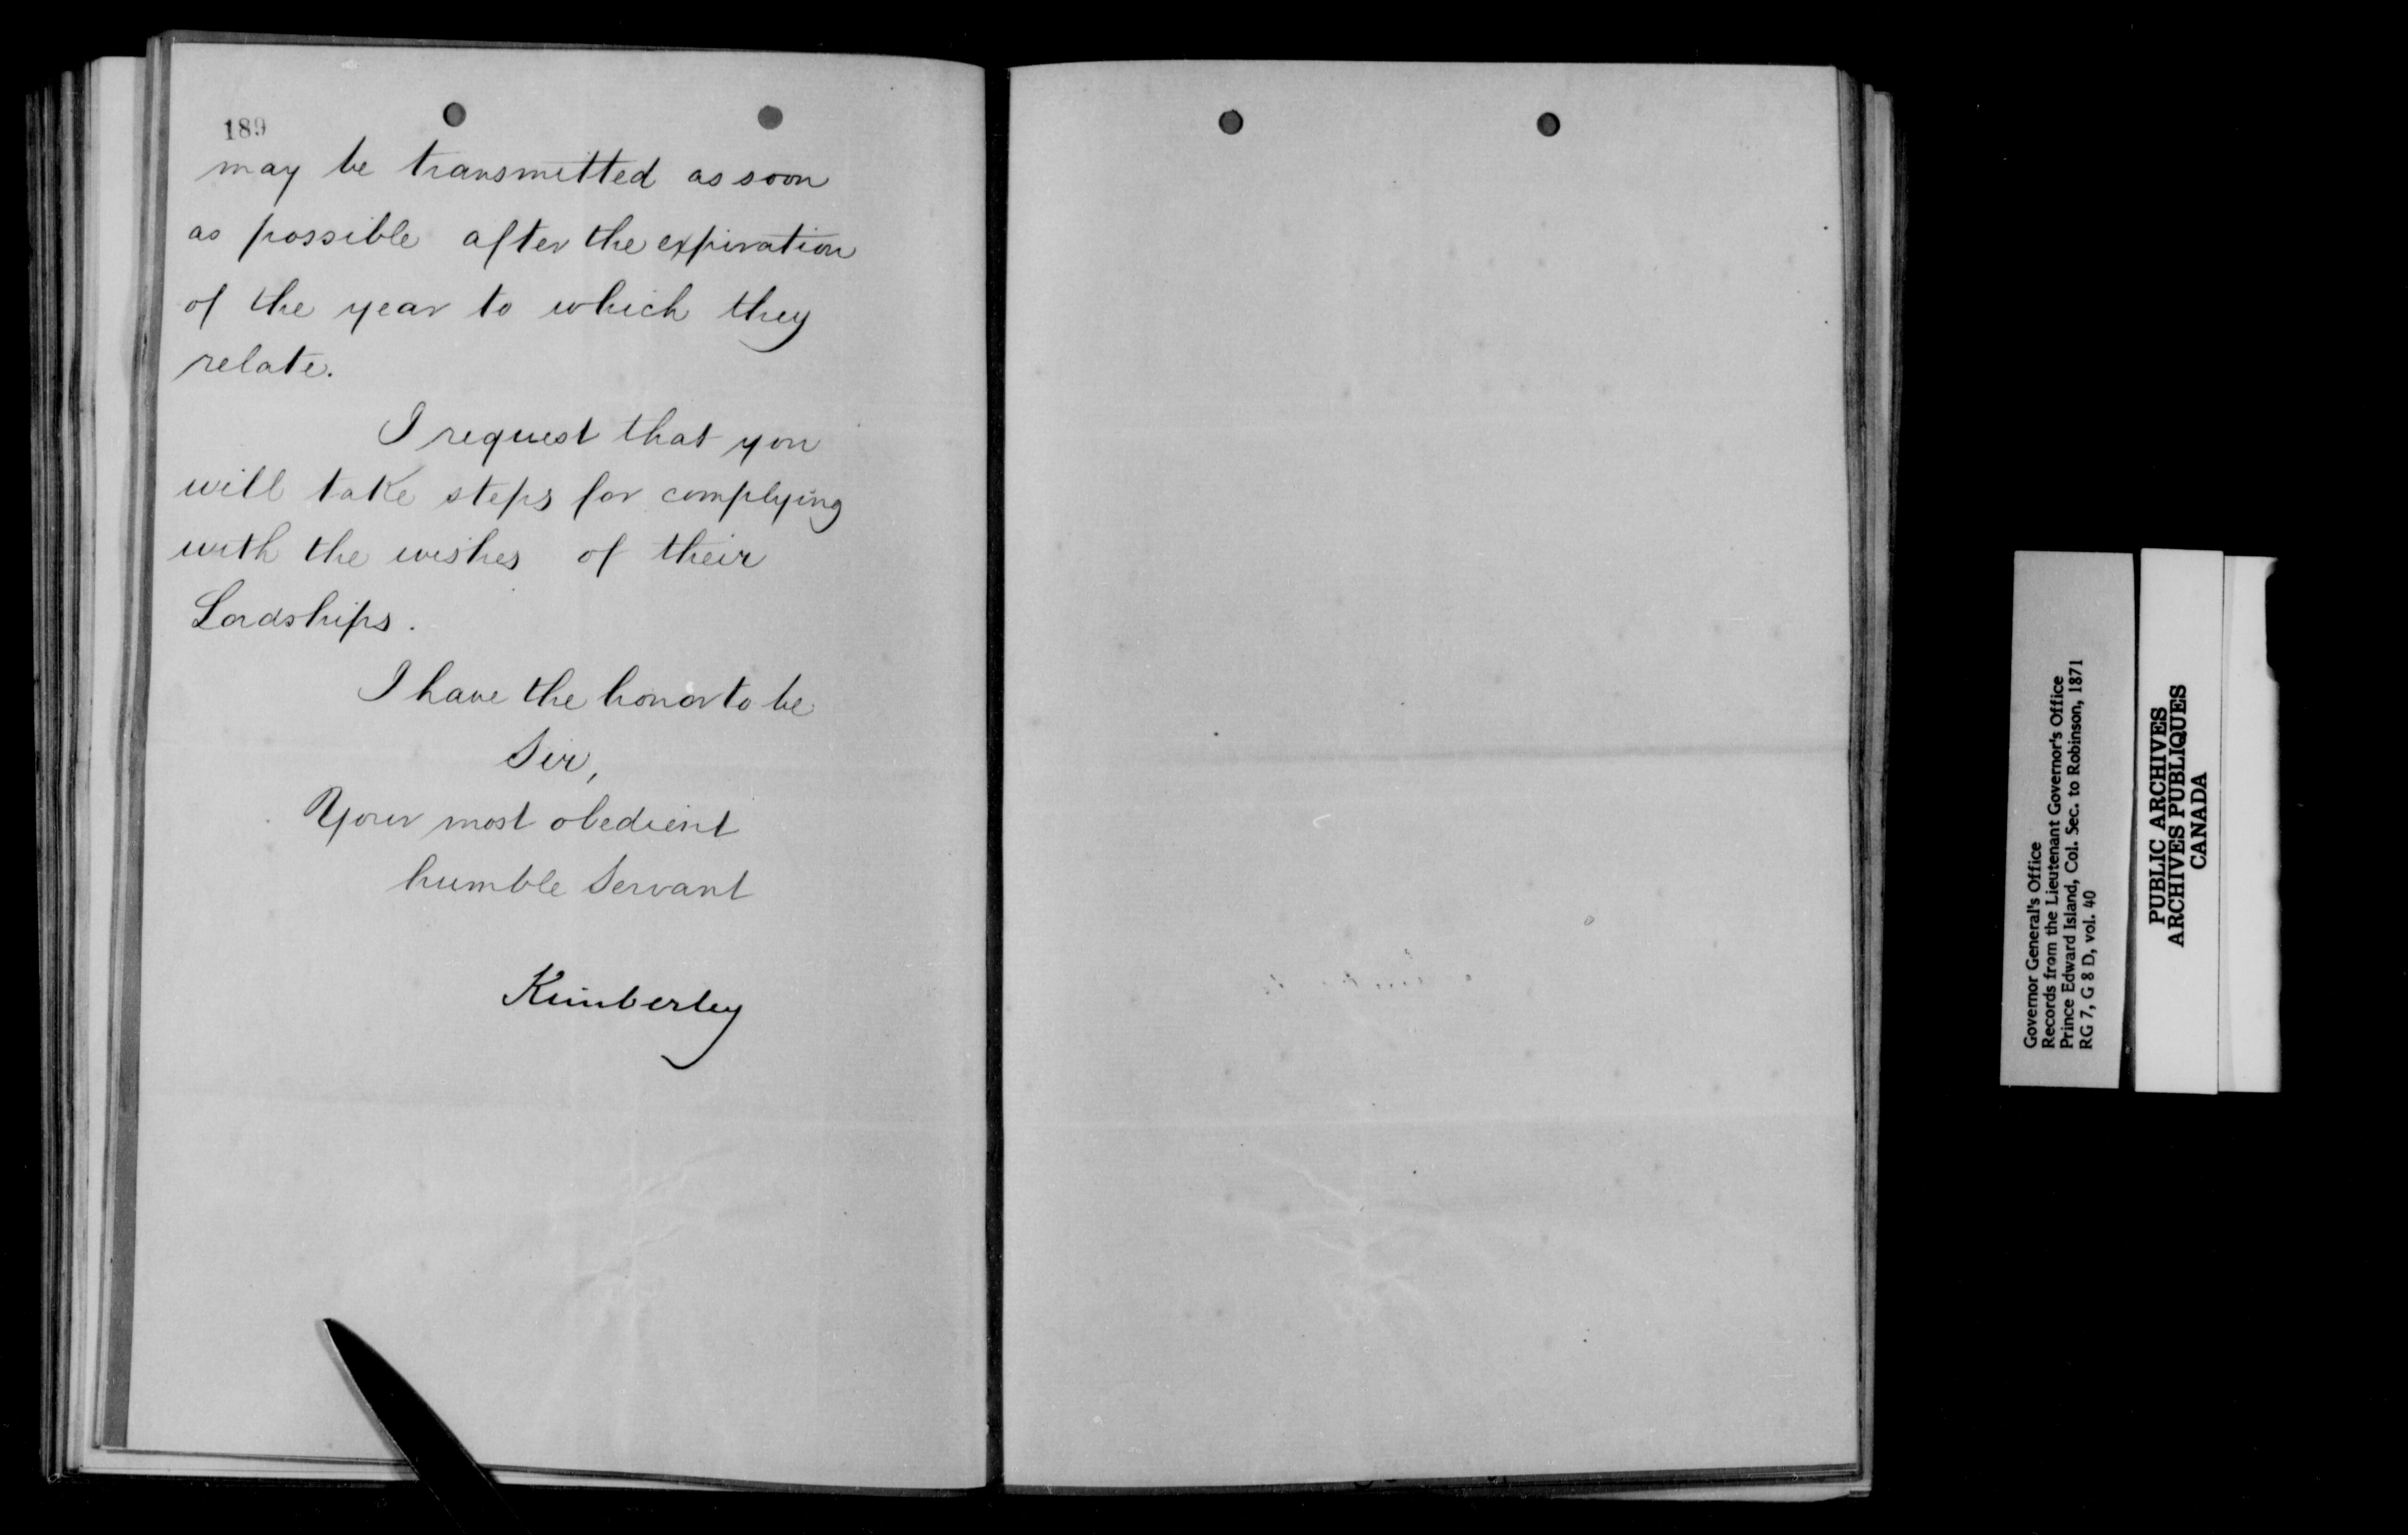 189
may be transmitted as soon
as possible after the expiration
of the year to which they
relate.
I request that you
will take steps for complying
with the wishes of their
Lordships.
I have the honor to be
Sir,
Your most obedient
humble Servant
Kimberley
Governor General's Office
Records from the Lieutenant Governor's Office
Prince Edward Island, Col. Sec. to Robinson, 1871
RG 7, G 8 D, vol. 40
PUBLIC ARCHIVES
ARCHIVES PUBLIQUES
CANADA